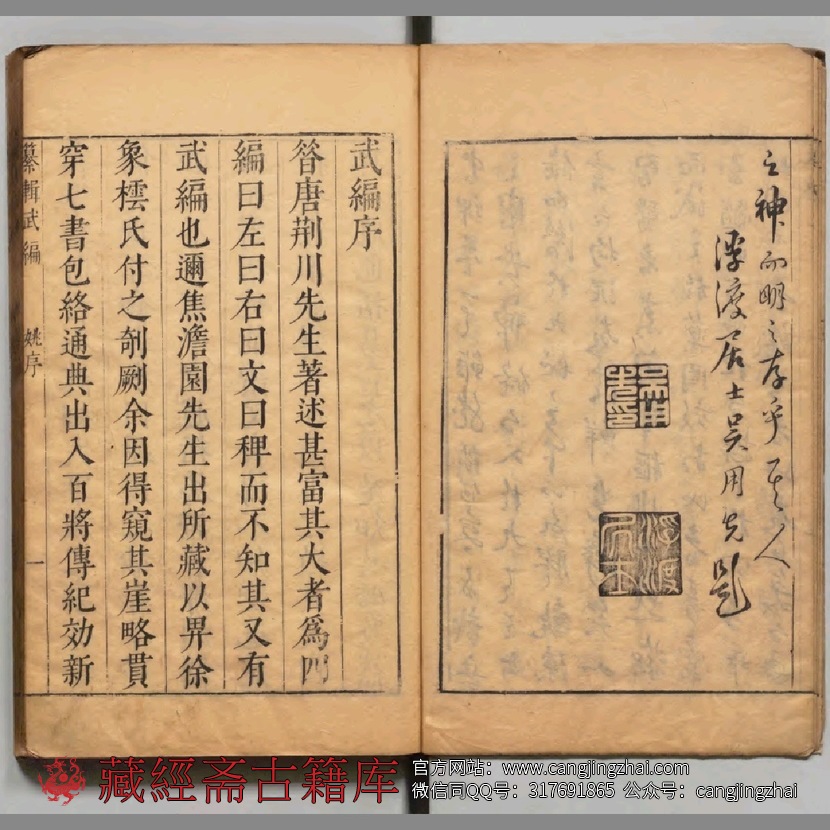 之神而明之存乎其人
浮渡居士吳用先題
吳用先印
浮渡居士
武編序
昝唐荆川先生著述甚富其大者爲四
編曰左曰右曰文曰稗而不知其又有
武編也邇焦澹園先生出所藏以畀徐
象橒氏付之剞劂余因得窺其崖略貫
穿七書包絡通典出入百將傳紀効新
纂輯武編 姚序 一
藏經斋古籍库
官方网站：www.cangjingzhai.com
微信同QQ号：317691865 公众号：cangjingzhai